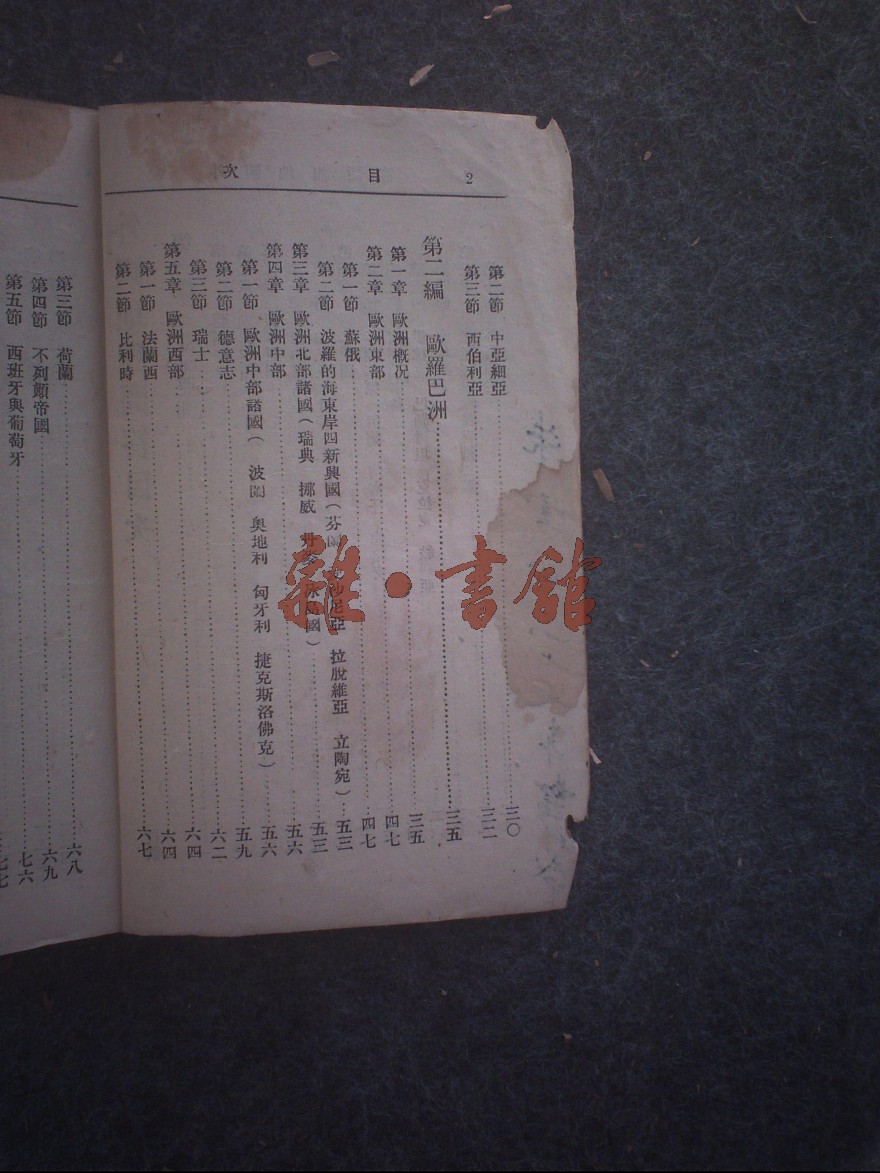 2 目次
第二節 中亞細亞 三〇
第三節 西伯利亞 三二
第二編 歐羅巴洲 三五
第一章 歐洲概況 三五
第二章 歐洲東部 四七
第一節 蘇俄 四七
第二節 波羅的海東岸四新興國(芬蘭 沙尼亞 拉脫維亞 立陶宛) 五三
第三章 歐洲北部諸國(瑞典 挪威 丹 島國) 五三
第四章 歐洲中部 五六
第一節 歐洲中部諸國(波蘭 奧地利 匈牙利 捷克斯洛佛克) 五六
第二節 德意志 五九
第三節 瑞士 六二
第五章 歐洲西部 六四
第一節 法蘭西 六四
第二節 比利時 六七
第三節 荷蘭 六八
第四節 不列顛帝國 六九
第五節 西班牙與葡萄牙 七六
雜·書館